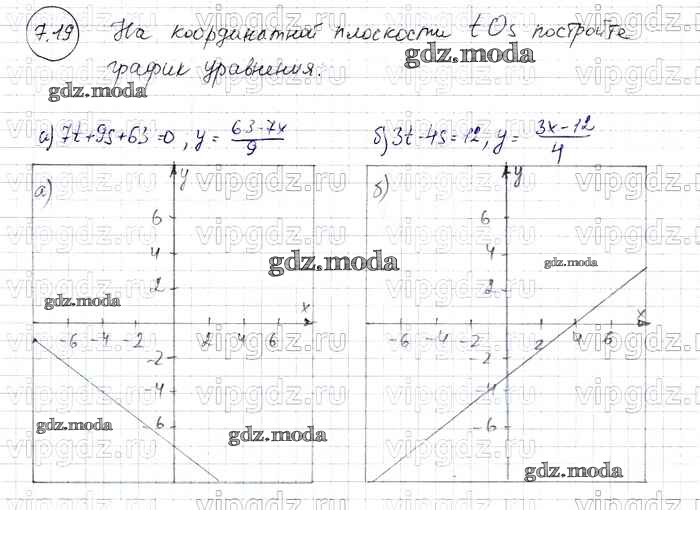 7.19 На координатной плоскости tOs постройте
gdz.moda
график уравнения.
gdz.moda
а) 7t+9s+63=0, y = 63-7x/9
б) 3t-4s=12, y = 3x-12/4
а)
y
6
4
2
x
-6 -4 -2 2 4 6
-2
-4
6
gdz.moda
gdz.moda
gdz.moda
gdz.moda
б)
y
6
4
2
x
-6 -4 -2 2 4 6
-2
-4
-6
gdz.moda
gdz.moda
vipgdz.ru vipgdz.ru vipgdz.ru vipgdz.ru